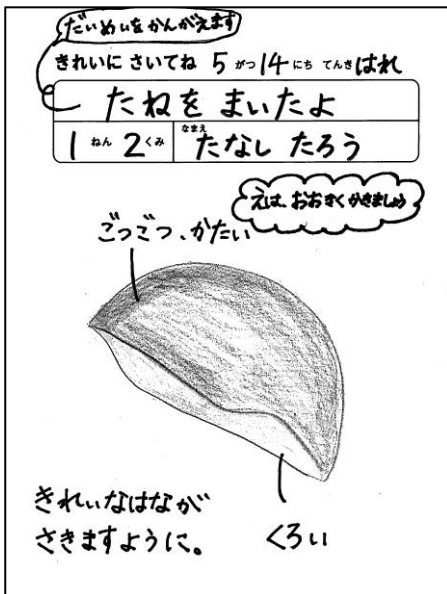 だいめいをかんがえます
きれいに さいてね 5 がつ 14 にち てんき はれ
たねを まいたよ
1 ねん 2 くみ なまえ たなし たろう
えは、おおきくかきましょう
ごつごつ、かたい
きれいなはなが
さきますように。
くろい